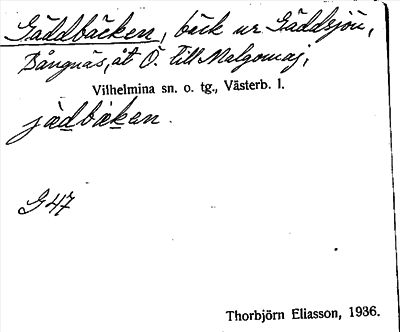 Gäddbäcken, bäck ur Gäddsjön,
Bångnäs, åt Ö. till Malgomaj,
Vilhelmina sn. o. tg., Västerb. l.
jädbäkan.
G 47
Thorbjörn Eliasson, 1936.